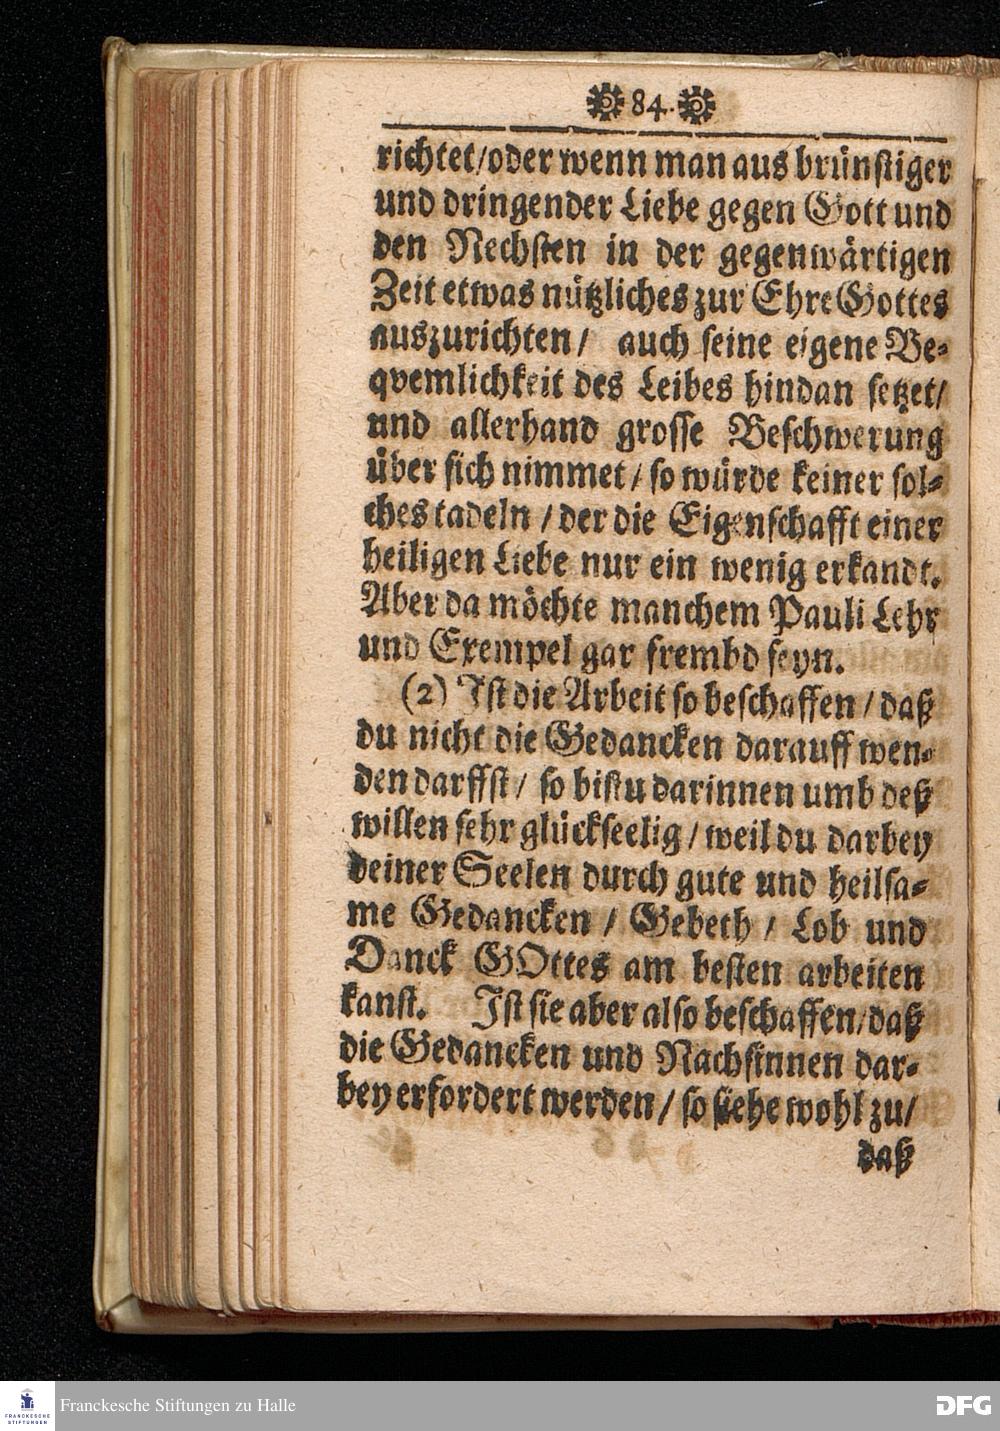 84.
richtet/oder wenn man aus brünstiger
und dringender Liebe gegen Gott und
den Nechsten in der gegenwärtigen
Zeit etwas nützliches zur Ehre Gottes
auszurichten/ auch seine eigene Be-
qvemlichkeit des Leibes hindan setzet/
und allerhand grosse Beschwerung
über sich nimmet/ so würde keiner sol-
ches tadeln / der die Eigenschafft einer
heiligen Liebe nur ein wenig erkandt.
Aber da möchte manchem Pauli Lehr
und Exempel gar frembd seyn.
(2) Ist die Arbeit so beschaffen / daß
du nicht die Gedancken darauff wen-
den darffst/ so bistu darinnen umb deß
willen sehr glückseelig / weil du darbey
deiner Seelen durch gute und heilsa-
me Gedancken / Gebeth / Lob und
Danck GOttes am besten arbeiten
kanst. Ist sie aber also beschaffen/daß
die Gedancken und Nachsinnen dar-
bey erfordert werden / so siehe wohl zu/
daß
FRANCKESCHE STIFTUNGEN
Franckesche Stiftungen zu Halle
DFG